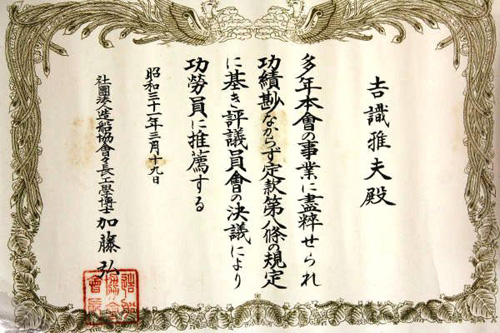 吉識雅夫殿
多年本會の事業に盡粹せられ
功績尠なからず定款第八條の規定
に基き評議員會の決議により
功勞員に推薦する
昭和三十一年三月十九日
社團法人造船協會會長工學博士 加藤弘